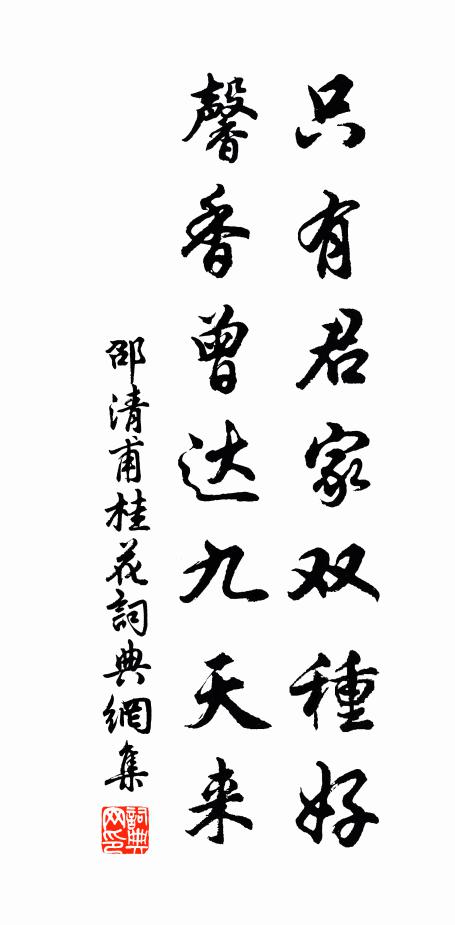 只有君家双種好
馨香曾达九天来
邵清甫桂花詞典網集
詞典网印